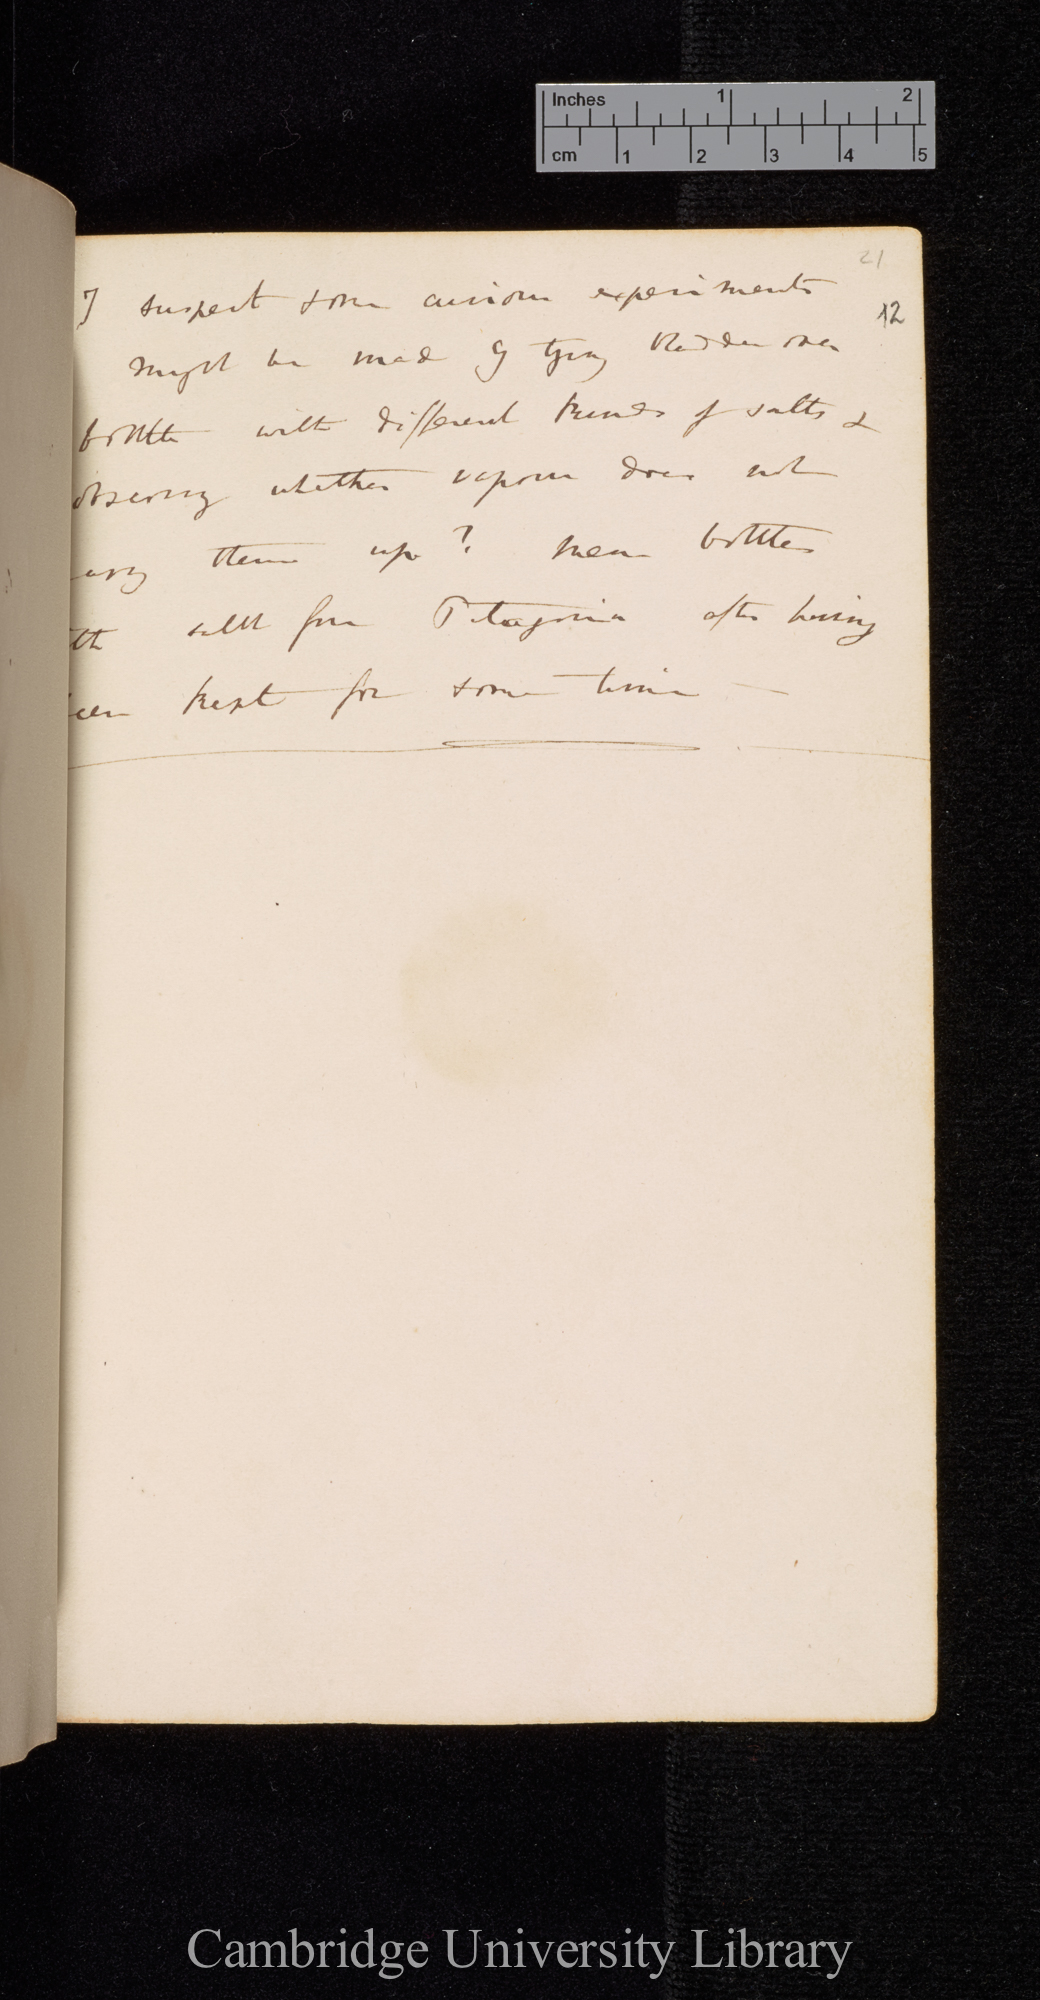 Inches 1 2
cm 1 2 3 4 5
21
I suspect some curious experiments
12
might be made by tying bladder over
bottle with different kinds of salts &
observing whether vapour does not
carry them up? mem bottles
th salt from Patagonia after having
een kept for some time —
Cambridge University Library